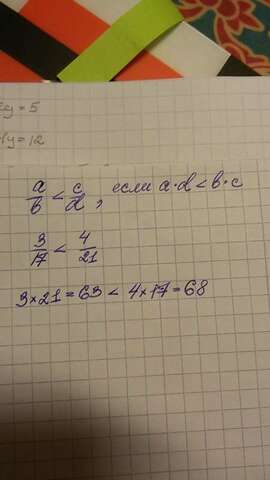 y = 5
y = 12
a/b < c/d, если a·d < b·c
3/17 < 4/21
3×21 = 63 < 4×17 = 68